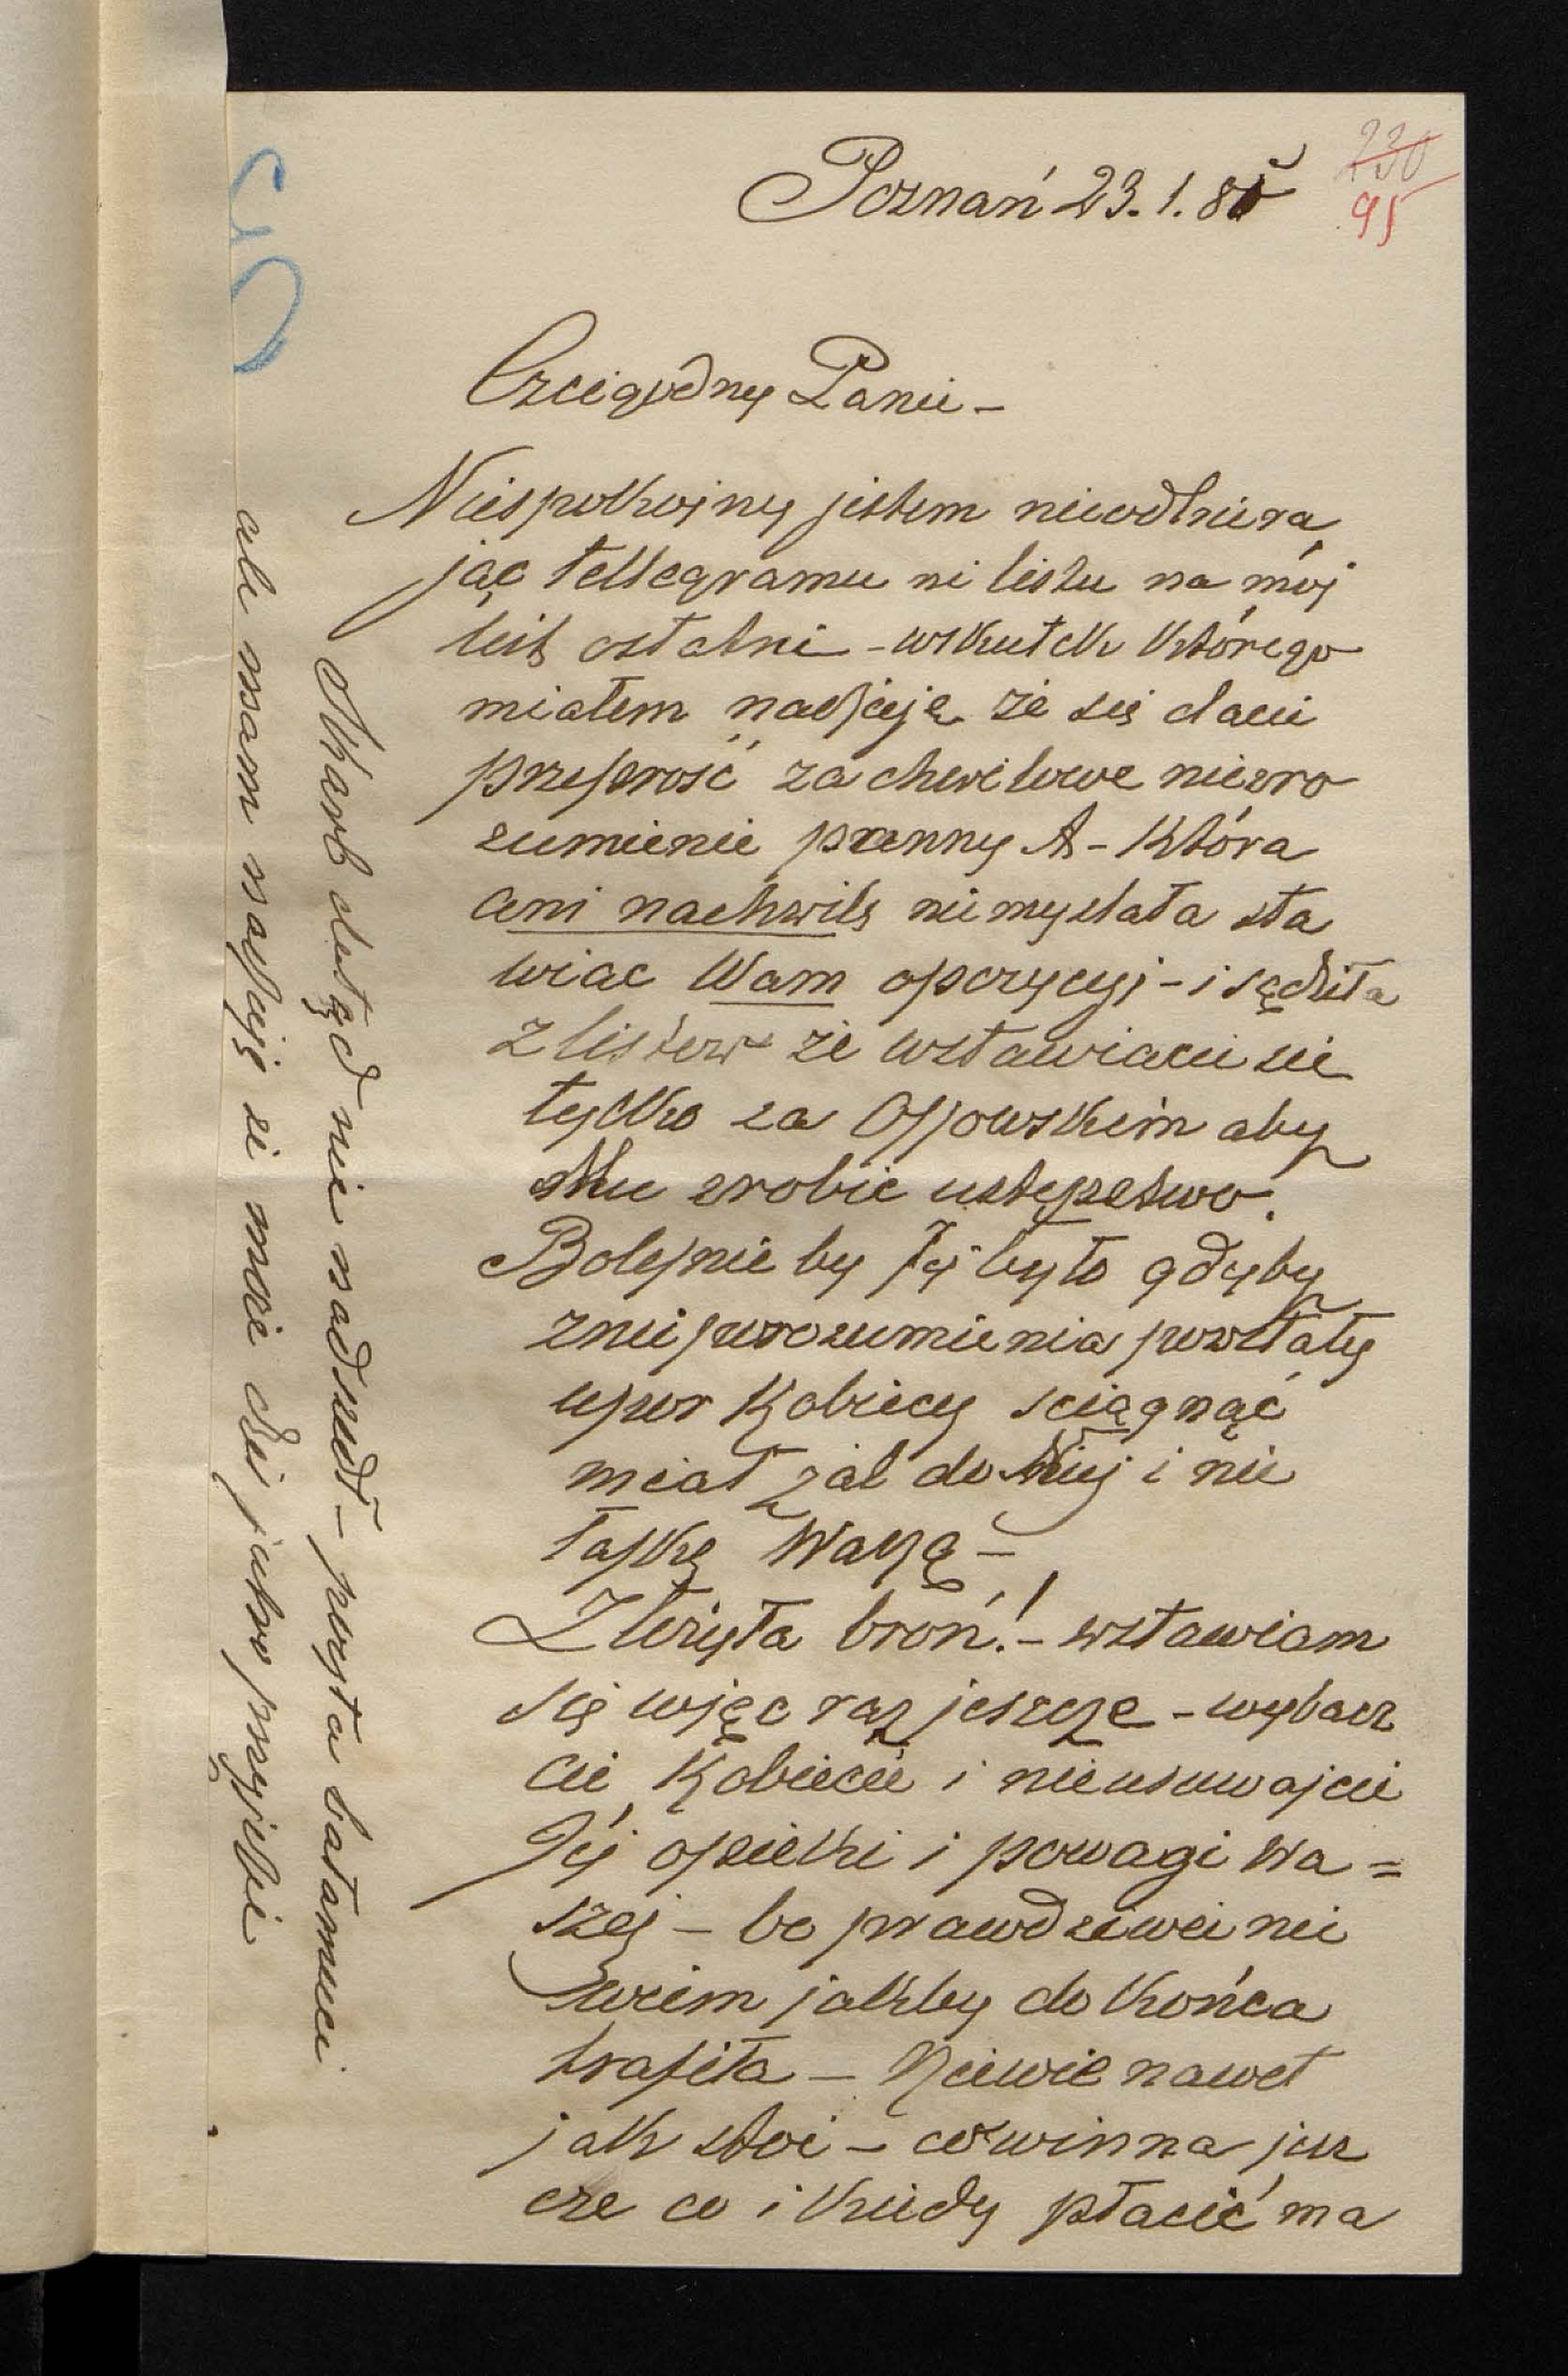 230
95
Poznań 23. 1. 85
Czcigodny Panie –
Niespokojny jestem nieodbiera
jąc tellegramu ni listu na mój
list ostatni – wskutek którego
miałem nadzieję że się dacie
przeprosć za chwilowe niezro
zumienie panny A – która
ani nachwilę niemyslała sta
wiac Wam opozycyj – i sądziła
z listów że wstawiacie sie
tylko za Opowskim aby
Mu zrobic ustępstwo.
Boleśnie by Jej było gdyby
znieporozumienia powstały
upor Kobiecy sciągnąć
miał żal do Niej i nie
łaskę Waszą –
Zbrzyła broń! – wstawiam
się więc raz jeszcze – wybacz
cie Kobiecie i nieusuwajcie
Jéj opieki i powagi Wa=
szej – bo prawdziwei nie
wiem jakby do końca
trafiła – Niewie nawet
jak stoi – co winna jesz
cze co i kiedy płacić ma
Skarb dotąd nie nadszedł – poczta bałamuci
ale mam nadzieję że może dziś jutro przyjdzie